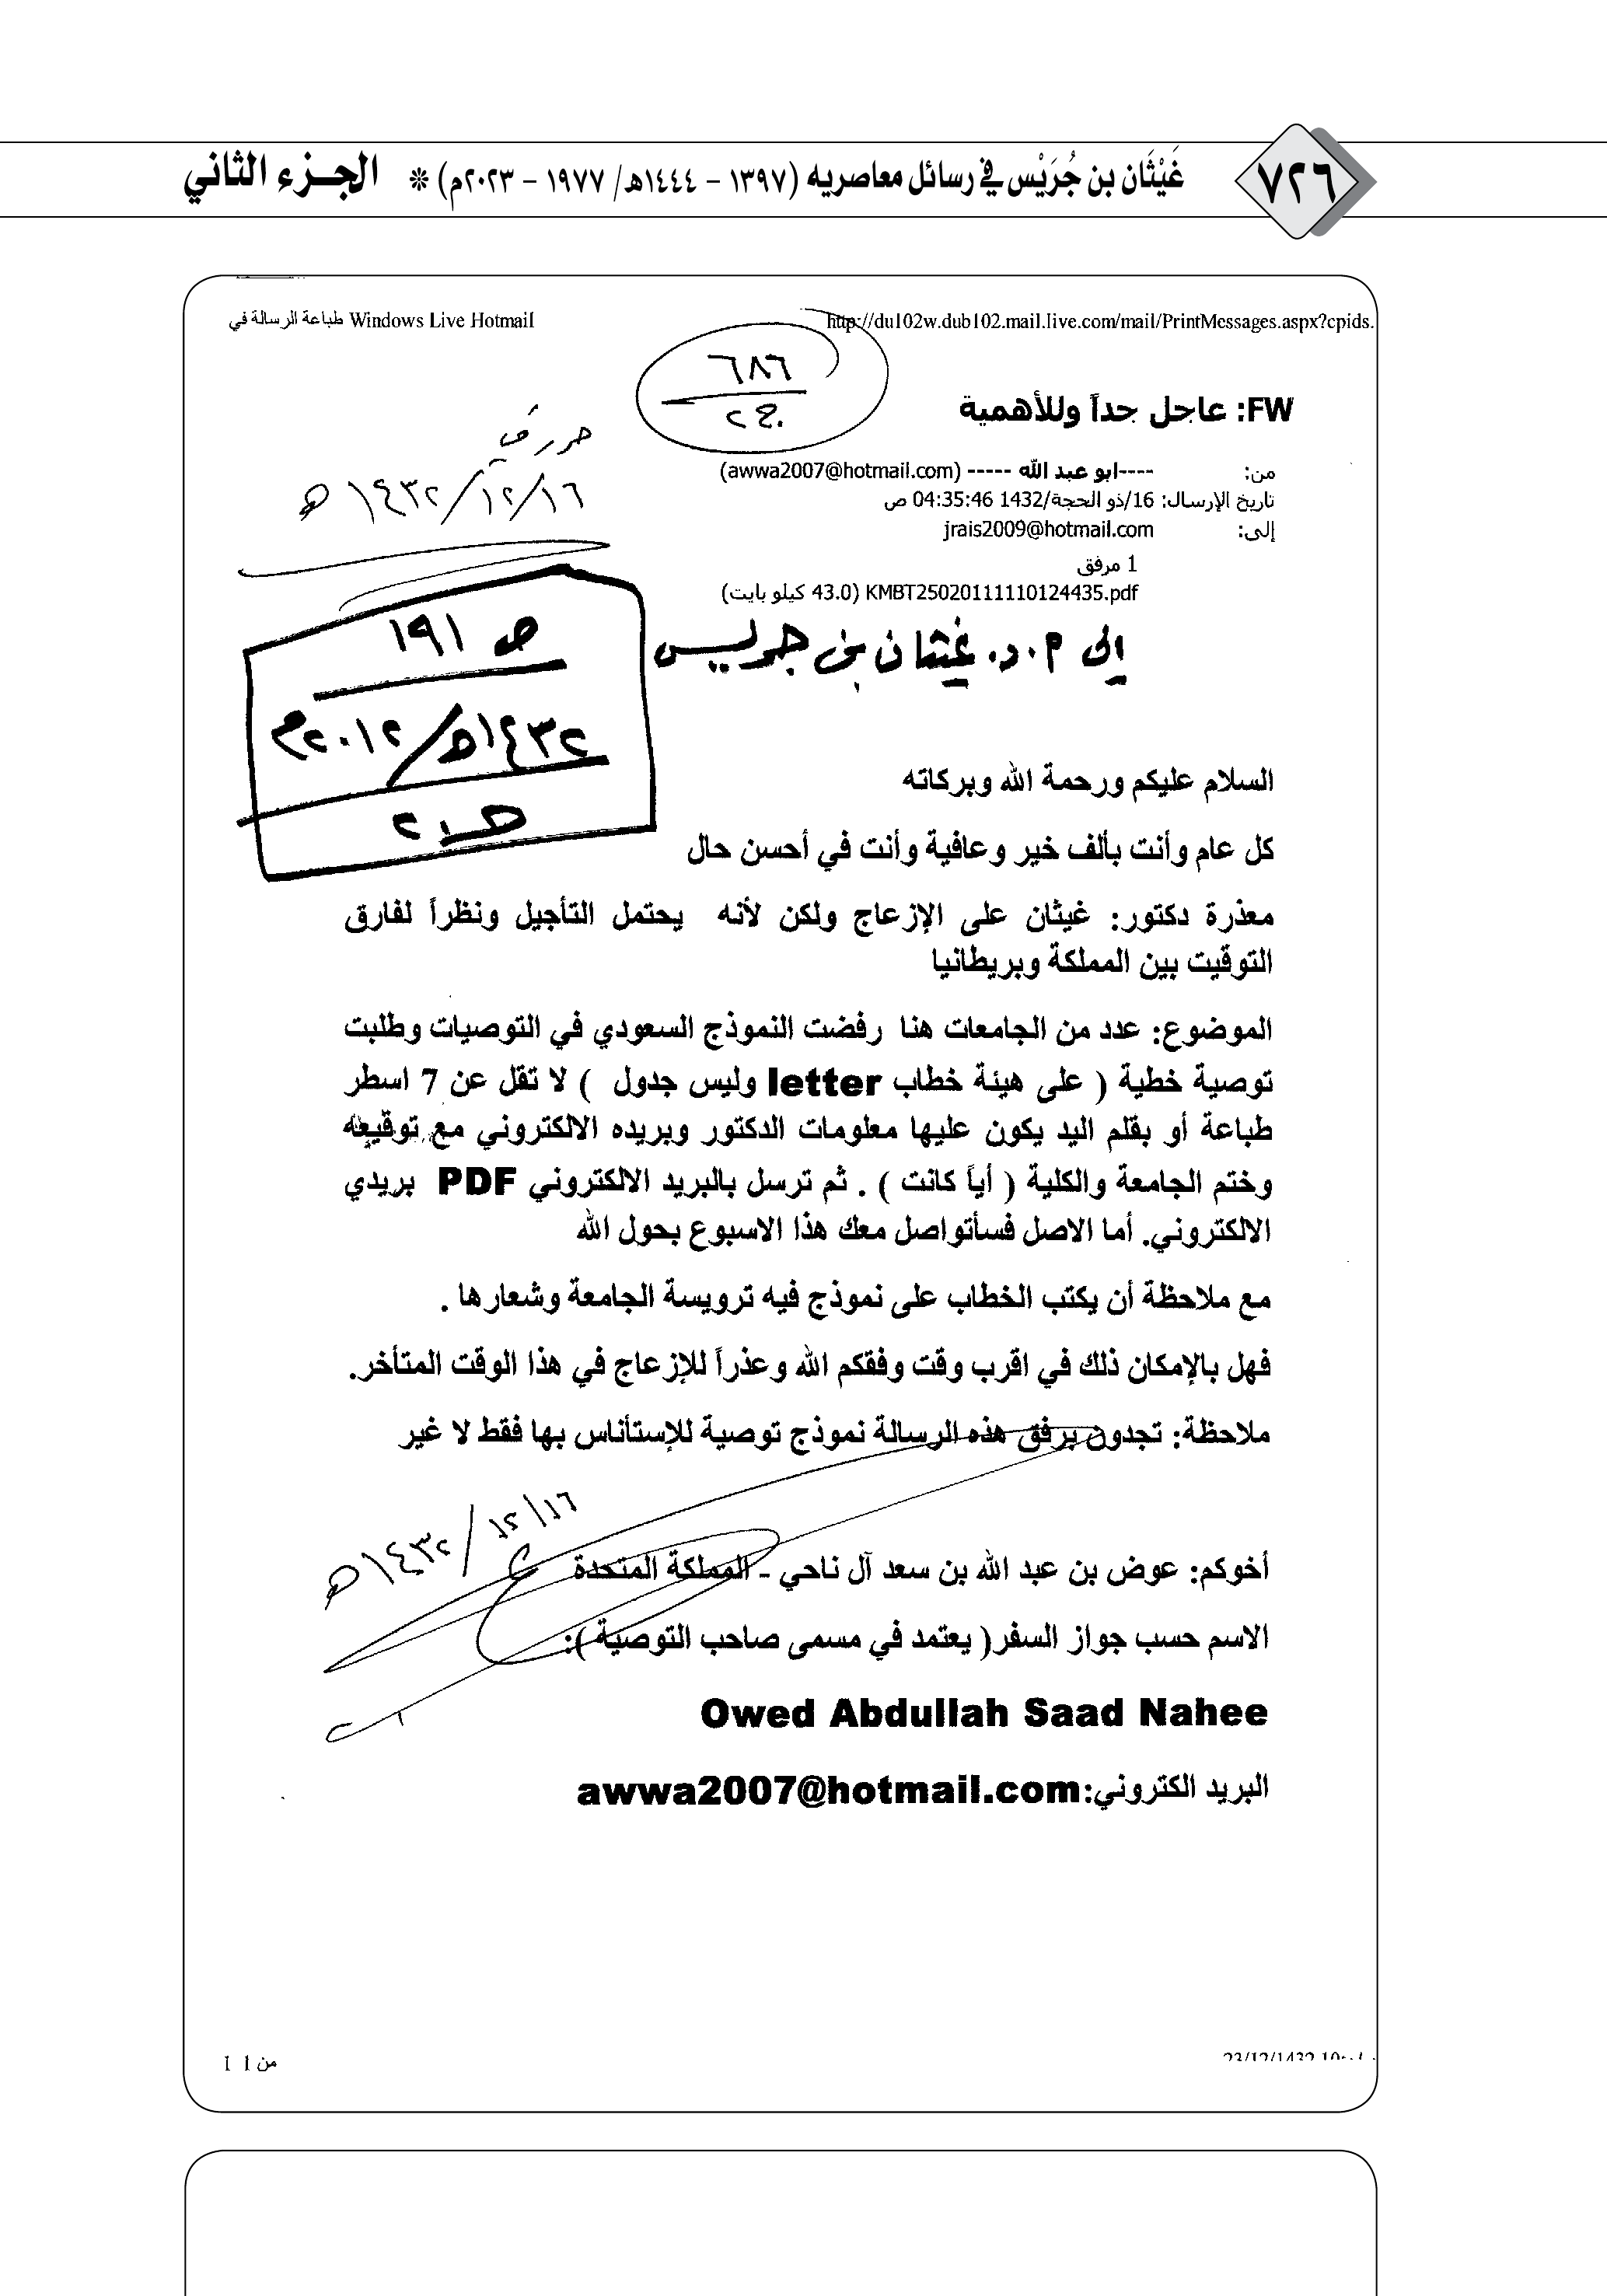 ٧٢٦
غَيْثَان بن جُرَيْس في رسائل معاصريه (١٣٩٧ - ١٤٤٤هـ/ ١٩٧٧ - ٢٠٢٣م) * الجزء الثاني
طباعة الرسالة في Windows Live Hotmail
http://du102w.dub102.mail.live.com/mail/PrintMessages.aspx?cpids.
٦٨٦
ج٢
FW: عاجل جداً وللأهمية
حرر في
١٤٣٢/١٢/١٦هـ
من: ----ابو عبد الله ----- (awwa2007@hotmail.com)
تاريخ الإرسال: 16/ذو الحجة/1432 04:35:46 ص
إلى: jrais2009@hotmail.com
1 مرفق
KMBT25020111110124435.pdf (43.0 كيلو بايت)
ص ١٩١
١٤٣٢هـ/٢٠١٢م
إلى م.د. غيثان بن جريس
السلام عليكم ورحمة الله وبركاته
كل عام وأنت بألف خير وعافية وأنت في أحسن حال
معذرة دكتور: غيثان على الإزعاج ولكن لأنه يحتمل التأجيل ونظراً لفارق
التوقيت بين المملكة وبريطانيا
الموضوع: عدد من الجامعات هنا رفضت النموذج السعودي في التوصيات وطلبت
توصية خطية ( على هيئة خطاب letter وليس جدول ) لا تقل عن 7 اسطر
طباعة أو بقلم اليد يكون عليها معلومات الدكتور وبريده الالكتروني مع توقيعه
وختم الجامعة والكلية ( أياً كانت ) . ثم ترسل بالبريد الالكتروني PDF بريدي
الالكتروني. أما الاصل فسأتواصل معك هذا الاسبوع بحول الله
مع ملاحظة أن يكتب الخطاب على نموذج فيه ترويسة الجامعة وشعارها .
فهل بالإمكان ذلك في اقرب وقت وفقكم الله وعذراً للإزعاج في هذا الوقت المتأخر.
ملاحظة: تجدون برفق هذه الرسالة نموذج توصية للإستأناس بها فقط لا غير
١٤٣٢/١٢/١٦هـ
أخوكم: عوض بن عبد الله بن سعد آل ناحي - المملكة المتحدة
الاسم حسب جواز السفر( يعتمد في مسمى صاحب التوصية ):
Owed Abdullah Saad Nahee
البريد الكتروني:awwa2007@hotmail.com
1 من 1